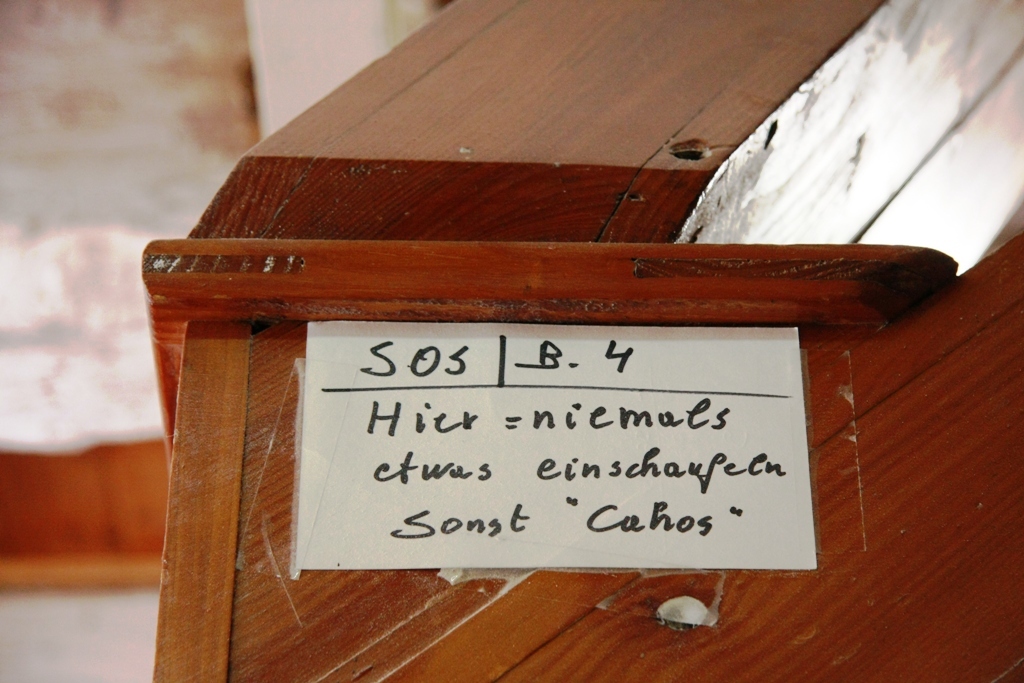 SOS | B. 4
Hier = niemals
etwas einschaufeln
Sonst "Cahos"